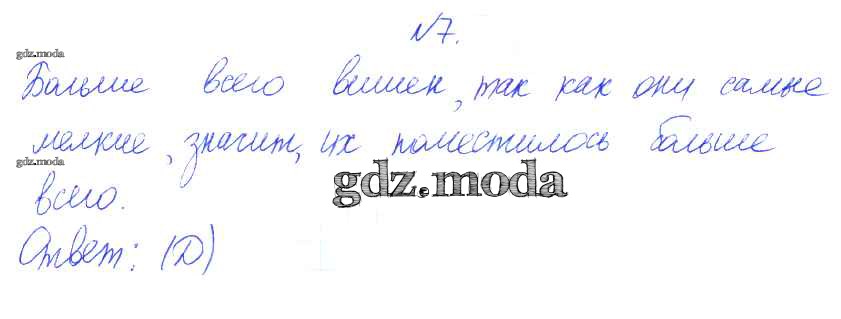 №7.
gdz.moda
Больше всего вишен, так как они самые
мелкие, значит, их поместилось больше
gdz.moda
gdz.moda
всего.
Ответ: (D)